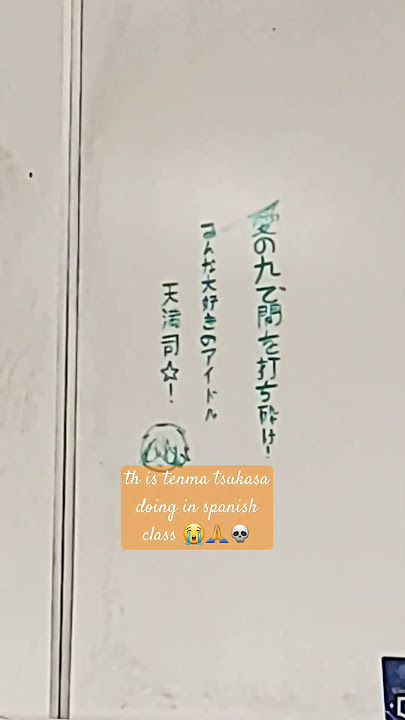 愛の九で間を打ち砕け!
みんな大好きのアイドル
天満司☆!
th is tenma tsukasa
doing in spanish
class 😭🙏💀